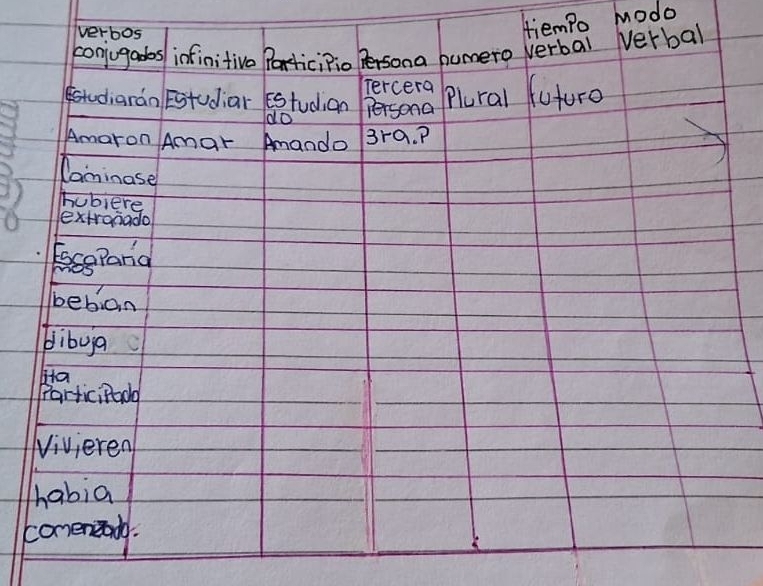 verbos conjugados infinitivo Participio Persona numero tiempo verbal Modo Verbal
Estudiarán Estudiar Estudian do Tercera Persona Plural futuro
Amaron Amar Amando 3ra.P
Caminase
hubiere extrañado
Escaparía mos
bebían
dibuja
Ha Participado
Vivieren
habia comenzado.